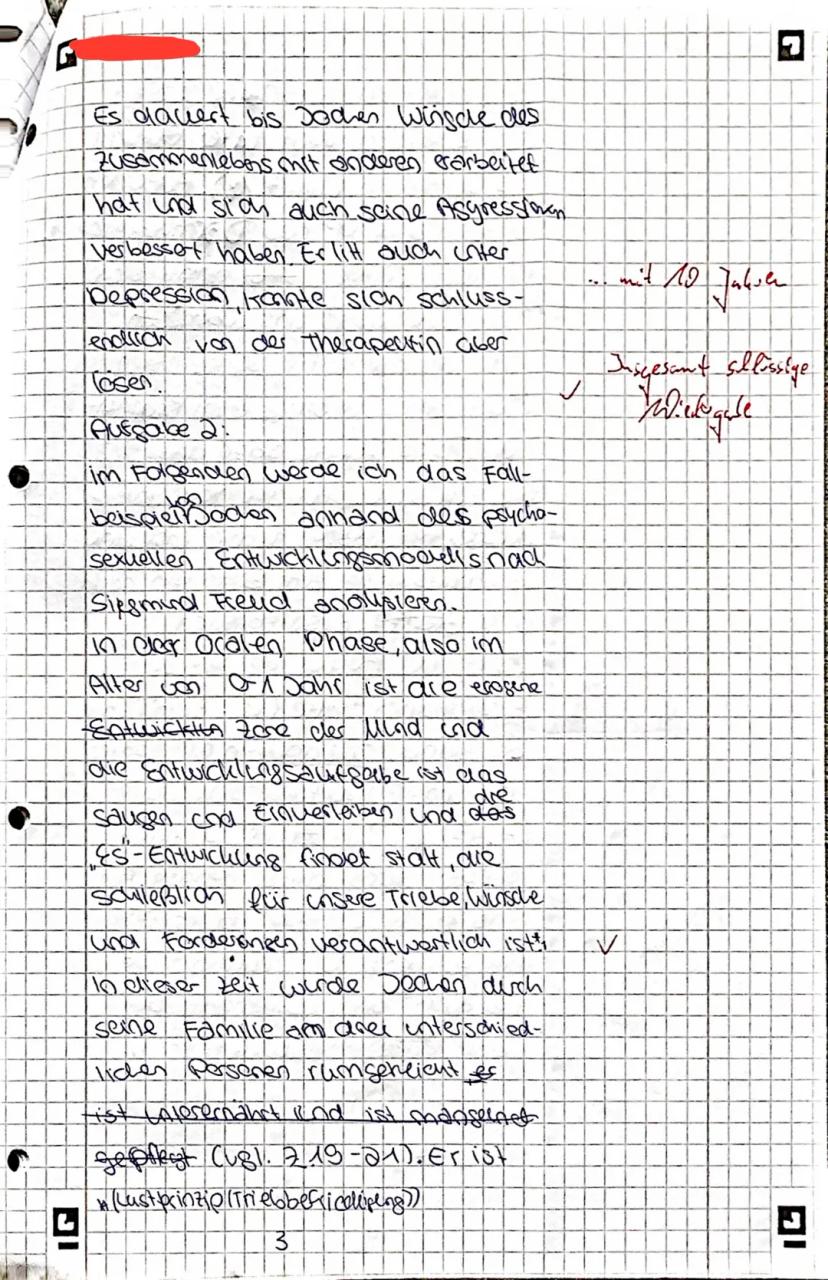 Es dauert bis Jochen Wünsche des
Zusammenlebens mit anderen erarbeitet
hat und sich auch seine Aggressionen
verbessert haben. Er litt auch unter
... mit 10 Jahren
Depression, konnte sich schluss-
endlich von der Therapeutin aber
lösen.
✓ Insgesamt schlüssige
Wiedergabe
Aufgabe 2:
im Folgenden werde ich das Fall-
beispiel von Jochen anhand des psycho-
sexuellen Entwicklungsmodells nach
Siegmund Freud analysieren.
In der Oralen Phase, also im
Alter von 0-1 Jahr ist die erogene
Entwickltn Zone der Mund und
die Entwicklungsaufgabe ist das
saugen und Einverleiben und das die
„ES"-Entwicklung findet statt, die
schließlich für unsere Triebe, Wünsche
und Forderungen verantwortlich ist*. ✓
In dieser Zeit wurde Jochen durch
seine Familie an drei unterschied-
lichen Personen rumgereicht er
ist unterernährt und ist mangelnd
gepflegt (vgl. Z.19-21). Er ist
*(Lustprinzip(Triebbefriedigung))
3